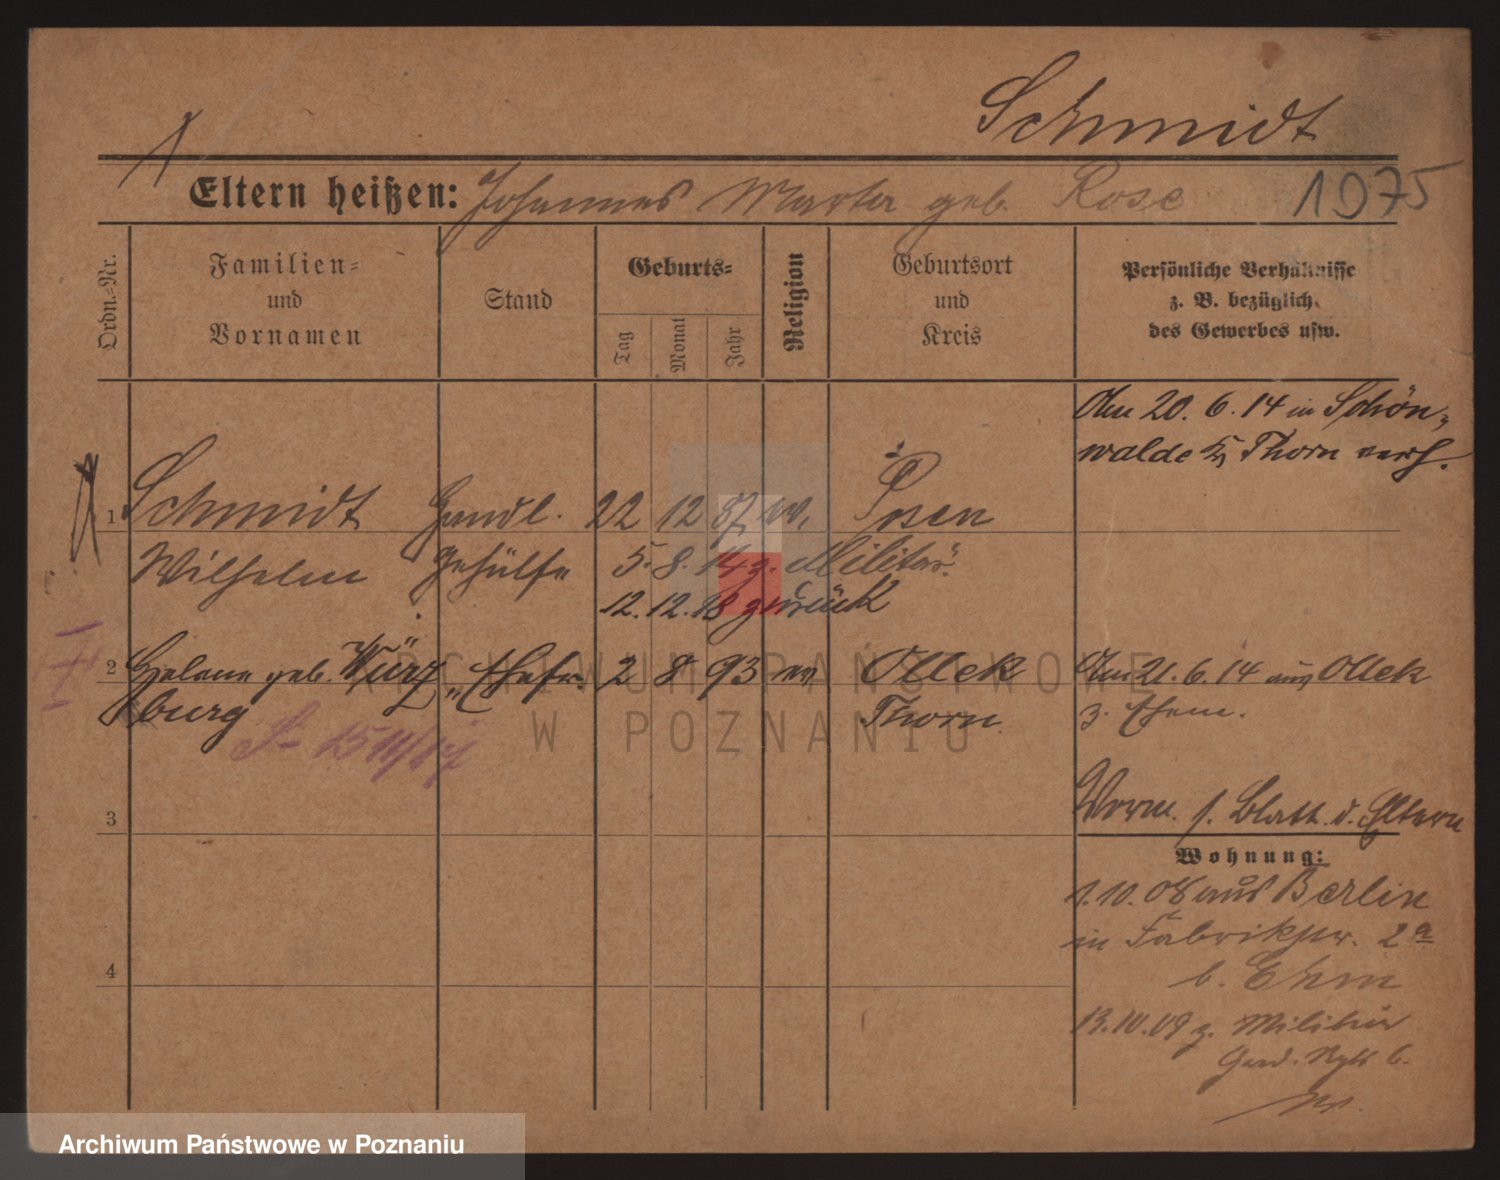 Schmidt
Eltern heißen: Johannes Marta geb. Rose 1975
Ordn.-Nr.
Familien-
und
Vornamen
Stand
Geburts-
Tag
Monat
Jahr
Religion
Geburtsort
und
Kreis
Persönliche Verhältnisse
z. B. bezüglich
des Gewerbes usw.
Am 20. 6. 14 in Schön-
walde Thorn verh.
1 Schmidt Handl. 22 12 87 ev. Posen
Wilhelm Gehülfe 5. 8. 14 z. Militär.
12. 12. 18 zurück
2 Helene geb. Würz- Ehefr. 2 8 93 ev Ollek Am 21. 6. 14 aus Ollek
burg Thorn z. Ehem.
Vorm. s. Blatt d. Eltern
3
Wohnung:
1. 10. 08 aus Berlin
in Fabrikstr. 2a
b. Ehm
4
13. 10. 09 z. Militär
ARCHIWUM PAŃSTWOWE
W POZNANIU
Archiwum Państwowe w Poznaniu